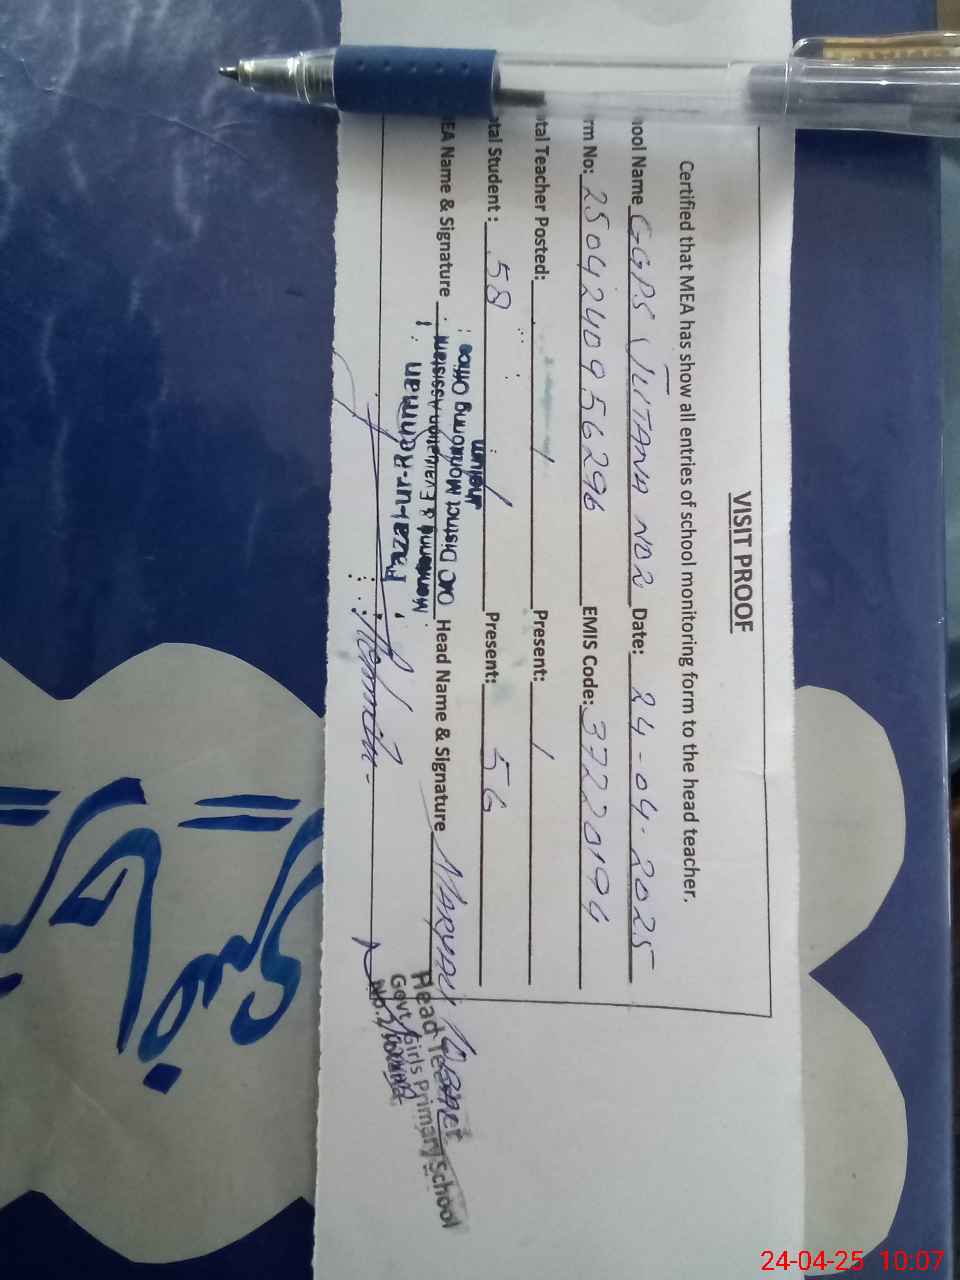 VISIT PROOF
Certified that MEA has show all entries of school monitoring form to the head teacher.
ool Name GGPS JUTANA NO2 Date: 24-04-2025
rm No: 2504240956296 EMIS Code: 37220194
tal Teacher Posted: 1 Present: 1
tal Student: 58 Present: 56
EA Name & Signature Head Name & Signature
Fazal-ur-Rehman
Monitoring & Evaluation Assistant
O/C District Monitoring Office
Jhelum
Head Teacher
Govt Girls Primary School
No.2
24-04-25 10:07